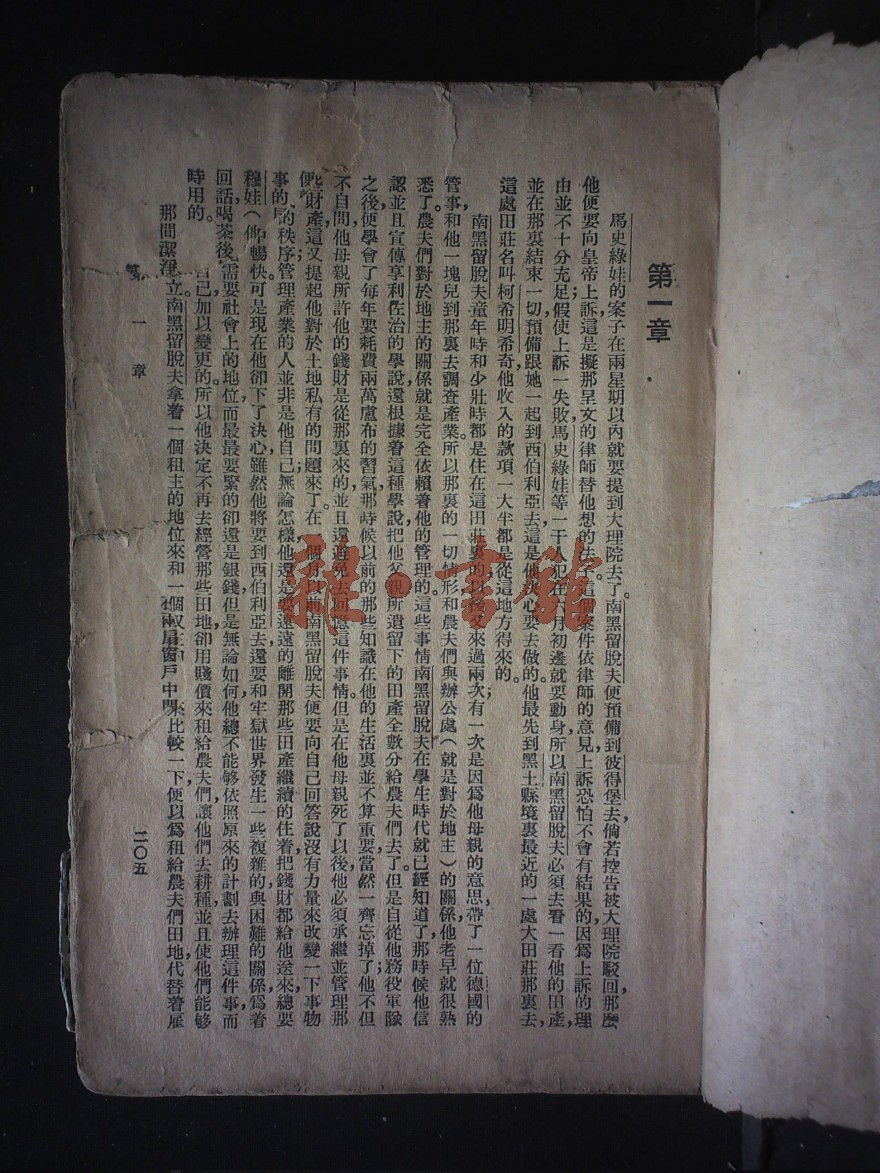 第一章
馬史綠娃的案子在兩星期以內就要提到大理院去了。南黑留脫夫便預備到彼得堡去，倘若控告被大理院駁回，那麼
他便要向皇帝上訴；這是擬那呈文的律師替他想的法子。這個案件依律師的意見，上訴恐怕不會有結果的，因爲上訴的理
由並不十分充足；假使上訴一失敗，馬史綠娃等一干人犯在六月初邊就要動身，所以南黑留脫夫必須去看一看他的田產，
並在那裏結束一切，預備跟她一起到西伯利亞去，這是他心要去做的。他最先到黑土縣境裏最近的一處大田莊那裏去，
這處田莊名叫柯希明希奇，他收入的款項一大半都是從這地方得來的。
南黑留脫夫童年時和少壯時都是住在這田莊裏的；以後又來過兩次；有一次是因爲他母親的意思，帶了一位德國的
管事和他一塊兒到那裏去調查產業。所以那裏的一切情形和農夫們與辦公處（就是對於地主）的關係，他老早就很熟
悉了。農夫們對於地主的關係就是完全依賴着他的管理的。這些事情南黑留脫夫在學生時代就已經知道了，那時候他信
認並且宣傳享利佐治的學說，還根據着這種學說，把他父親所遺留下的田產全數分給農夫們去了。但是自從他務役軍隊
之後，便學會了每年要耗費兩萬盧布的習氣，那時候以前的那些知識在他的生活裏並不算重要，當然一齊忘掉了；他不但
不自問，他母親所許他的錢財是從那裏來的，並且還避免去回憶這件事情。但是在他母親死了以後，他必須承繼並管理那
些財產，這又提起他對於土地私有的問題來了。在一個月以前南黑留脫夫便要向自己回答說沒有力量來改變一下事物
的秩序；管理產業的人並非是他自己；無論怎樣他還是要遠遠的離開那些田產繼續的住着，把錢財都給他送來，總要
暢快。可是現在他卻下了決心，雖然他將要到西伯利亞去，還要和牢獄世界發生一些複雜的與困難的關係，爲着
需要社會上的地位，而最最要緊的卻還是銀錢，但是無論如何，他總不能够依照原來的計劃去辦理這件事，而
自己加以變更的。所以他決定不再去經營那些田地，卻用賤價來租給農夫們，讓他們去耕種，並且使他們能够
立。南黑留脫夫拿着一個租主的地位來和一個奴主的 來比較一下，便以爲租給農夫們田地，代替着雇
事的
穆娃（
回話，喝茶後，
時用的。
那間潔淨
兩扇窗戶中
一章
二〇五
雜·書館